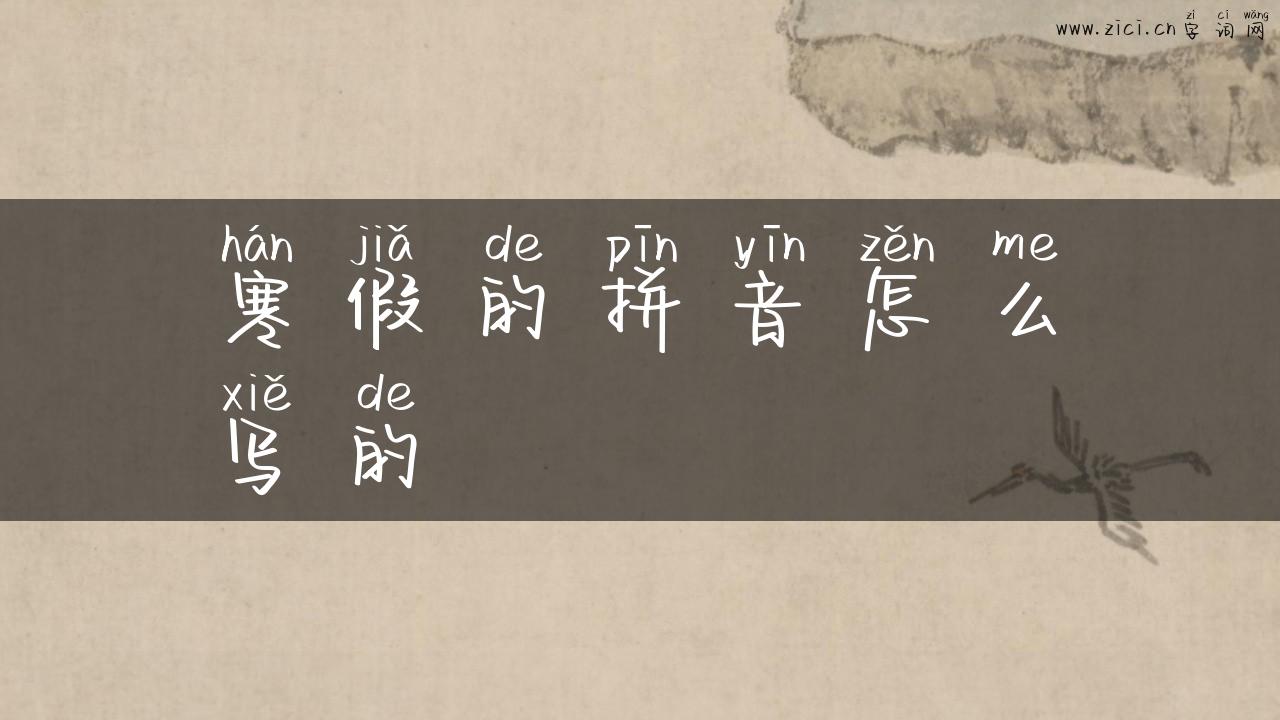 zì cí wǎng
www.zici.cn字词网
hán jiǎ de pīn yīn zěn me
寒假的拼音怎么
xiě de
写的